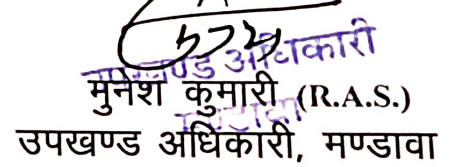 उपखण्ड अधिकारी
मुनेश कुमारी (R.A.S.)
मण्डावा
उपखण्ड अधिकारी, मण्डावा